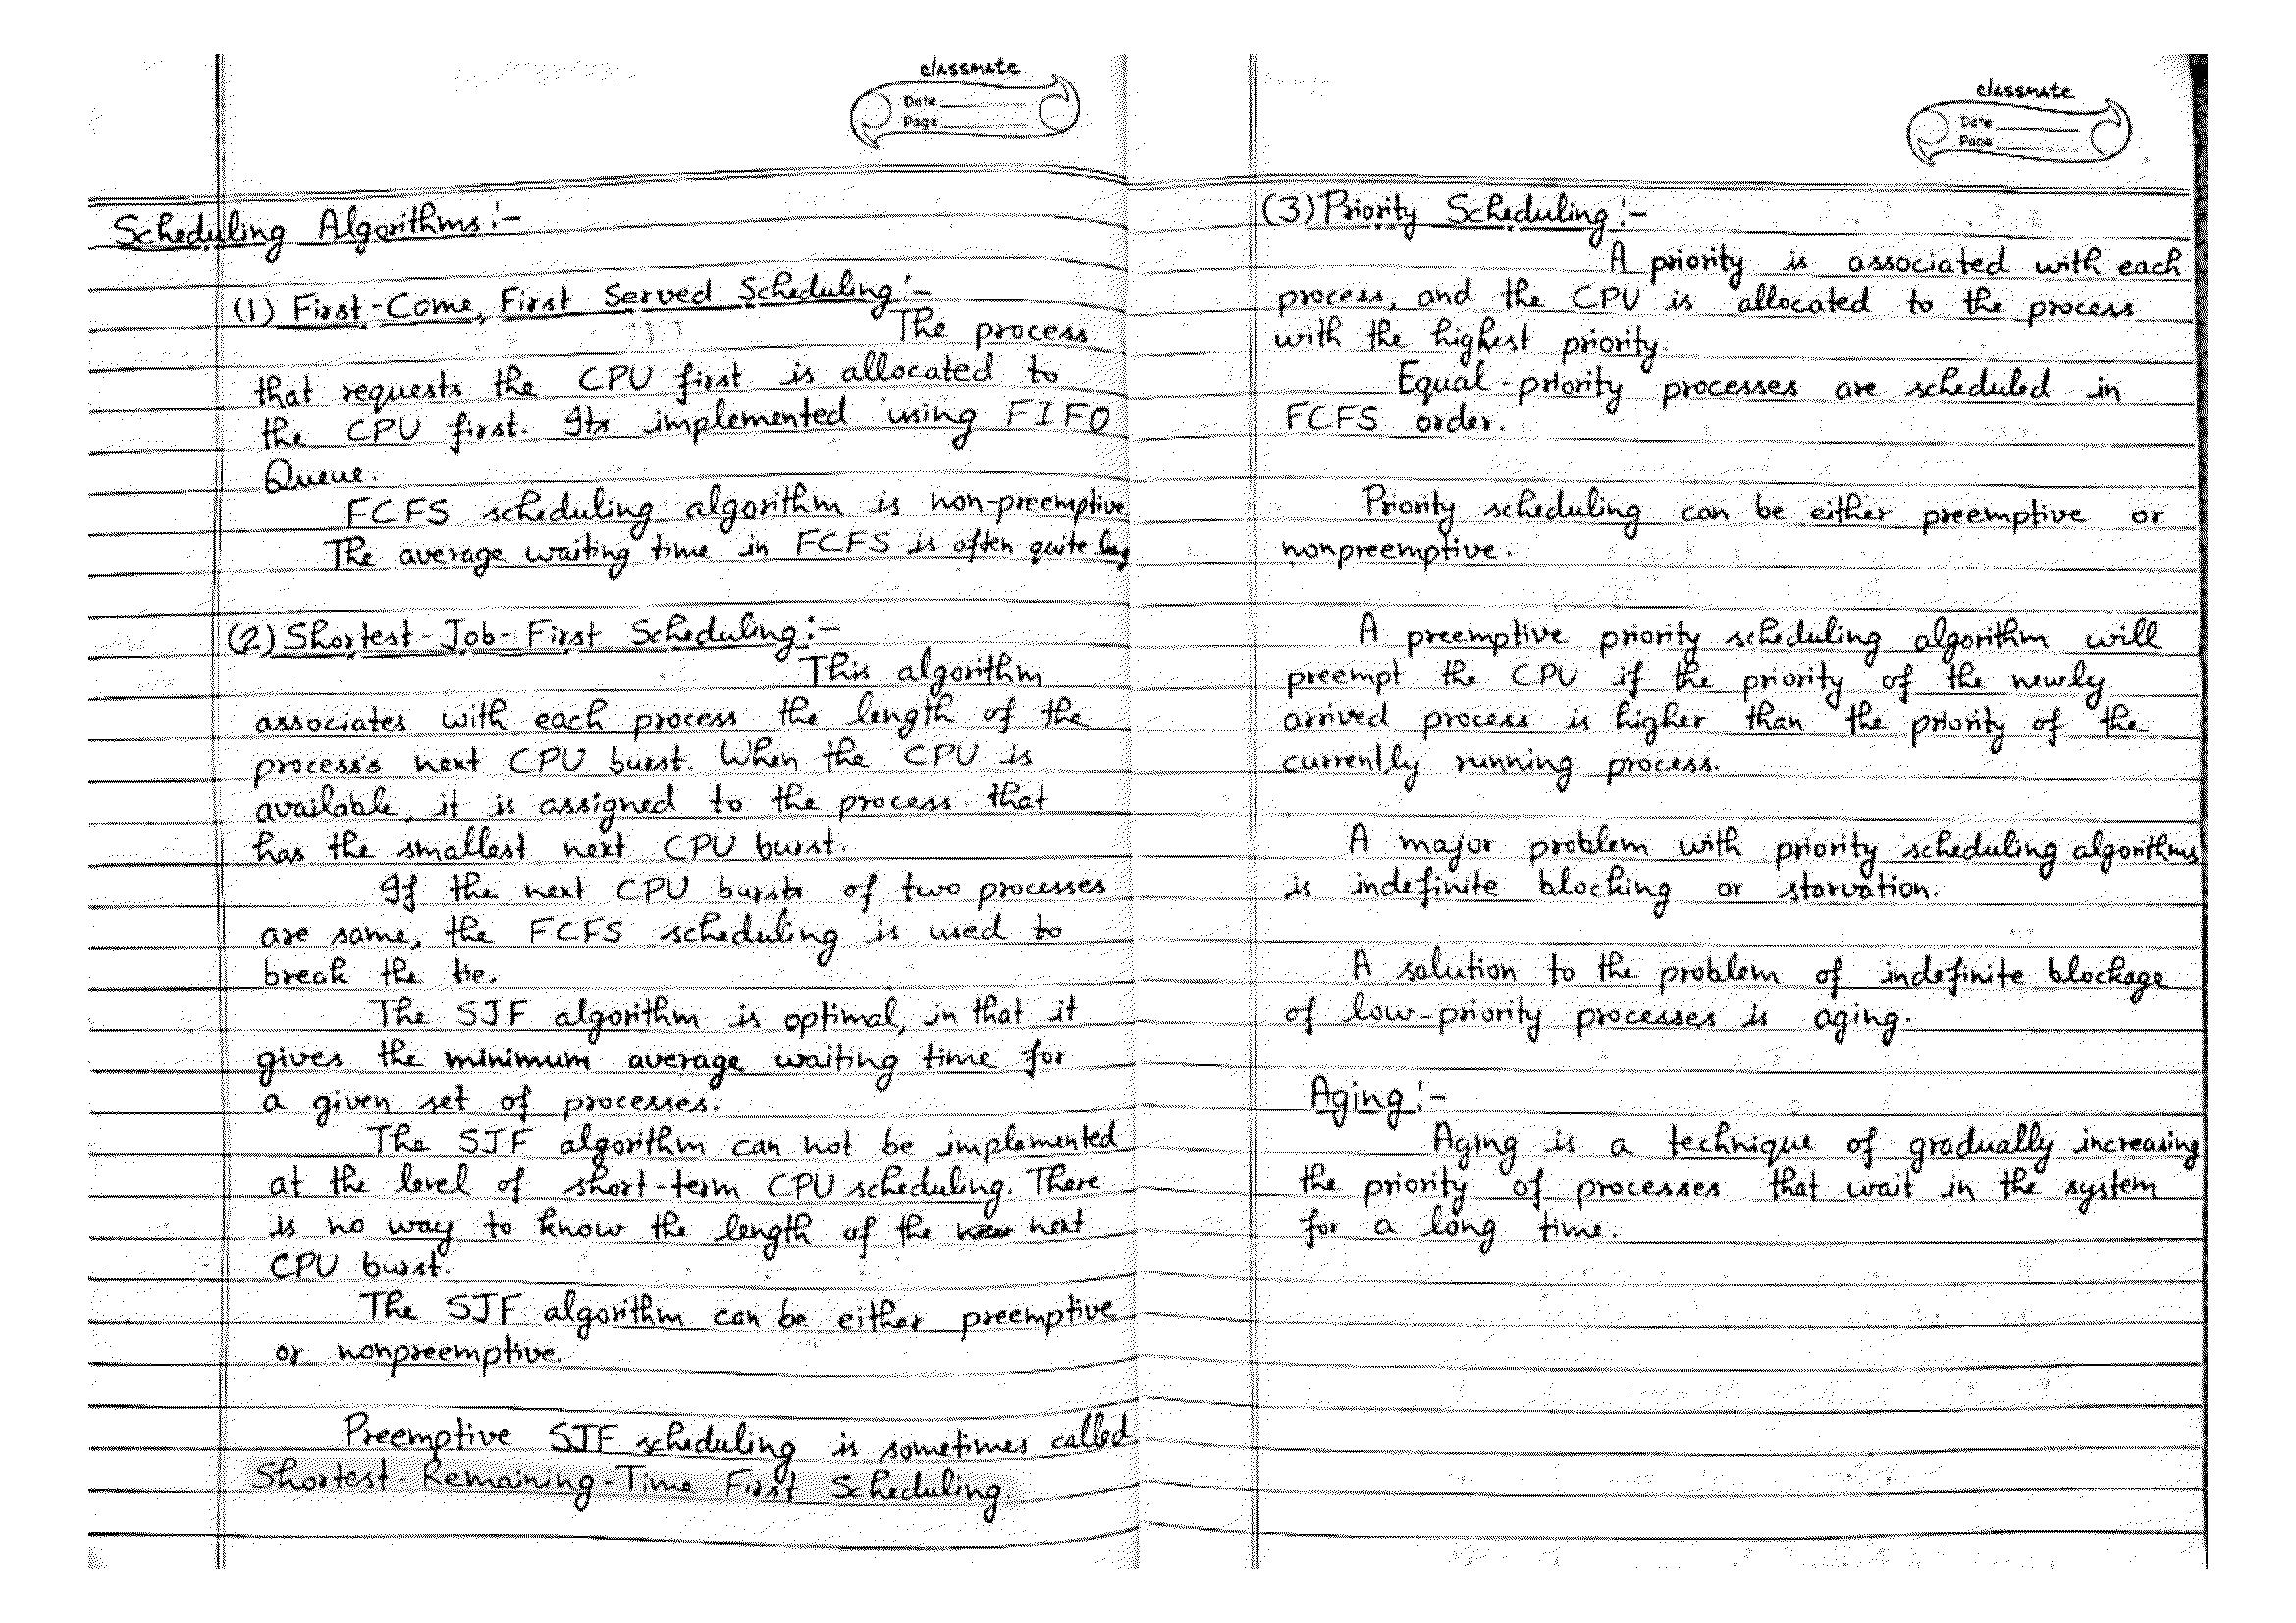 classmate
Date
Page
Scheduling Algorithms :-
(1) First-Come, First Served Scheduling :-
The process
that requests the CPU first is allocated to
the CPU first. Its implemented using FIFO
Queue.
FCFS scheduling algorithm is non-preemptive
The average waiting time in FCFS is often quite long
(2) Shortest-Job-First Scheduling :-
This algorithm
associates with each process the length of the
process's next CPU burst. When the CPU is
available, it is assigned to the process that
has the smallest next CPU burst.
If the next CPU bursts of two processes
are same, the FCFS scheduling is used to
break the tie.
The SJF algorithm is optimal, in that it
gives the minimum average waiting time for
a given set of processes.
The SJF algorithm can not be implemented
at the level of short-term CPU scheduling. There
is no way to know the length of the next
CPU burst.
The SJF algorithm can be either preemptive
or nonpreemptive.
Preemptive SJF scheduling is sometimes called
Shortest-Remaining-Time-First Scheduling
classmate
Date
Page
(3) Priority Scheduling :-
A priority is associated with each
process, and the CPU is allocated to the process
with the highest priority.
Equal-priority processes are scheduled in
FCFS order.
Priority scheduling can be either preemptive or
nonpreemptive.
A preemptive priority scheduling algorithm will
preempt the CPU if the priority of the newly
arrived process is higher than the priority of the
currently running process.
A major problem with priority scheduling algorithms
is indefinite blocking or starvation.
A solution to the problem of indefinite blockage
of low-priority processes is aging.
Aging :-
Aging is a technique of gradually increasing
the priority of processes that wait in the system
for a long time.